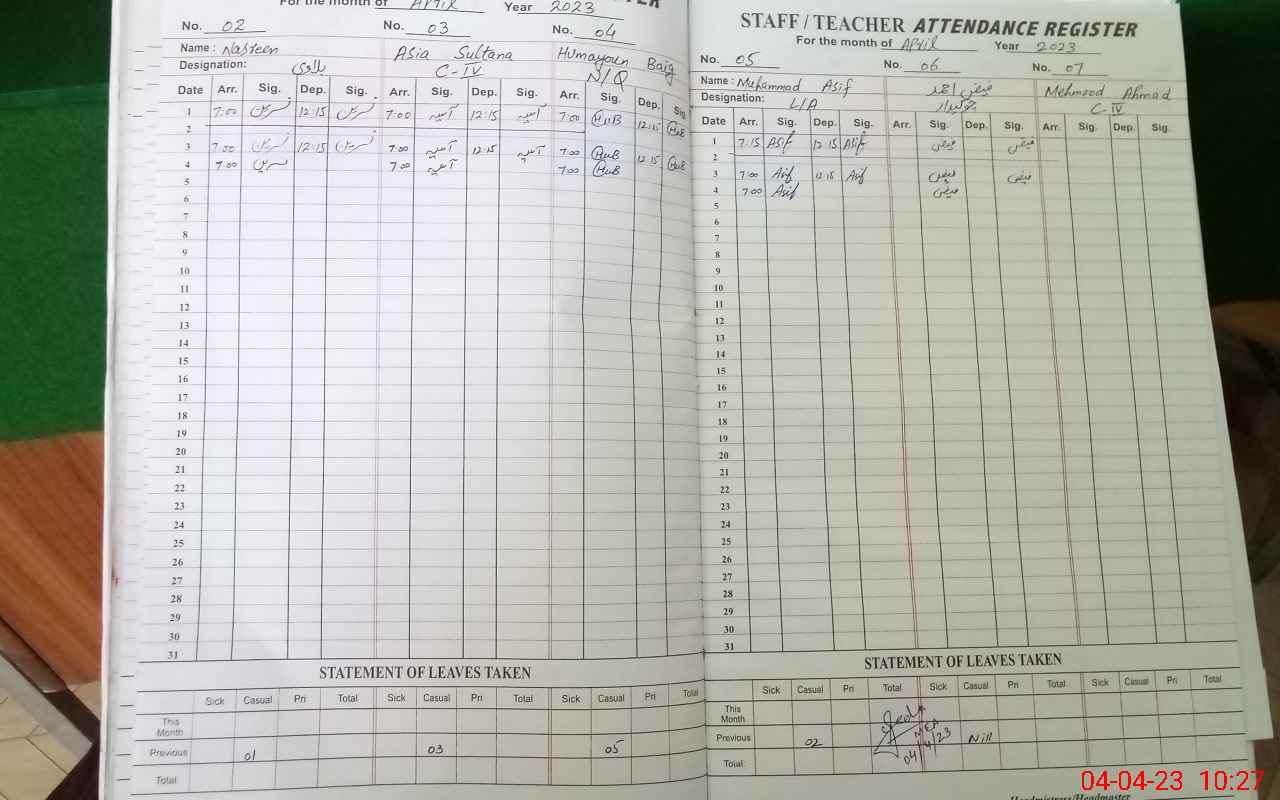 For the month of April Year 2023
No. 02 No. 03 No. 04
Name : Nasreen Asia Sultana Humayoun Baig
Designation: C-IV N/Q
Date Arr. Sig. Dep. Sig. Arr. Sig. Dep. Sig. Arr. Sig. Dep. Sig
1 7:00 نسرین 12:15 نسرین 7:00 آسیہ 12:15 آسیہ 7:00 HuB 12:15 HuB
2
3 7:00 نسرین 12:15 نسرین 7:00 آسیہ 12:15 آسیہ 7:00 HuB 12:15 HuB
4 7:00 نسرین 7:00 آسیہ 7:00 HuB
5
6
7
8
9
10
11
12
13
14
15
16
17
18
19
20
21
22
23
24
25
26
27
28
29
30
31
STATEMENT OF LEAVES TAKEN
Sick Casual Pri Total Sick Casual Pri Total Sick Casual Pri Total
This Month
Previous 01 03 05
Total
STAFF / TEACHER ATTENDANCE REGISTER
For the month of April Year 2023
No. 05 No. 06 No. 07
Name : Muhammad Asif فیض احمد Mehmood Ahmad
Designation: L/A چوکیدار C-IV
Date Arr. Sig. Dep. Sig. Arr. Sig. Dep. Sig. Arr. Sig. Dep. Sig.
1 7:15 Asif 12:15 Asif فیض فیض
2
3 7:00 Asif 12:15 Asif فیض فیض
4 7:00 Asif فیض
5
6
7
8
9
10
11
12
13
14
15
16
17
18
19
20
21
22
23
24
25
26
27
28
29
30
31
STATEMENT OF LEAVES TAKEN
Sick Casual Pri Total Sick Casual Pri Total Sick Casual Pri Total
This Month
Previous 02 Nill
Total
MEA
04/4/23
Headmistress/Headmaster
04-04-23 10:27